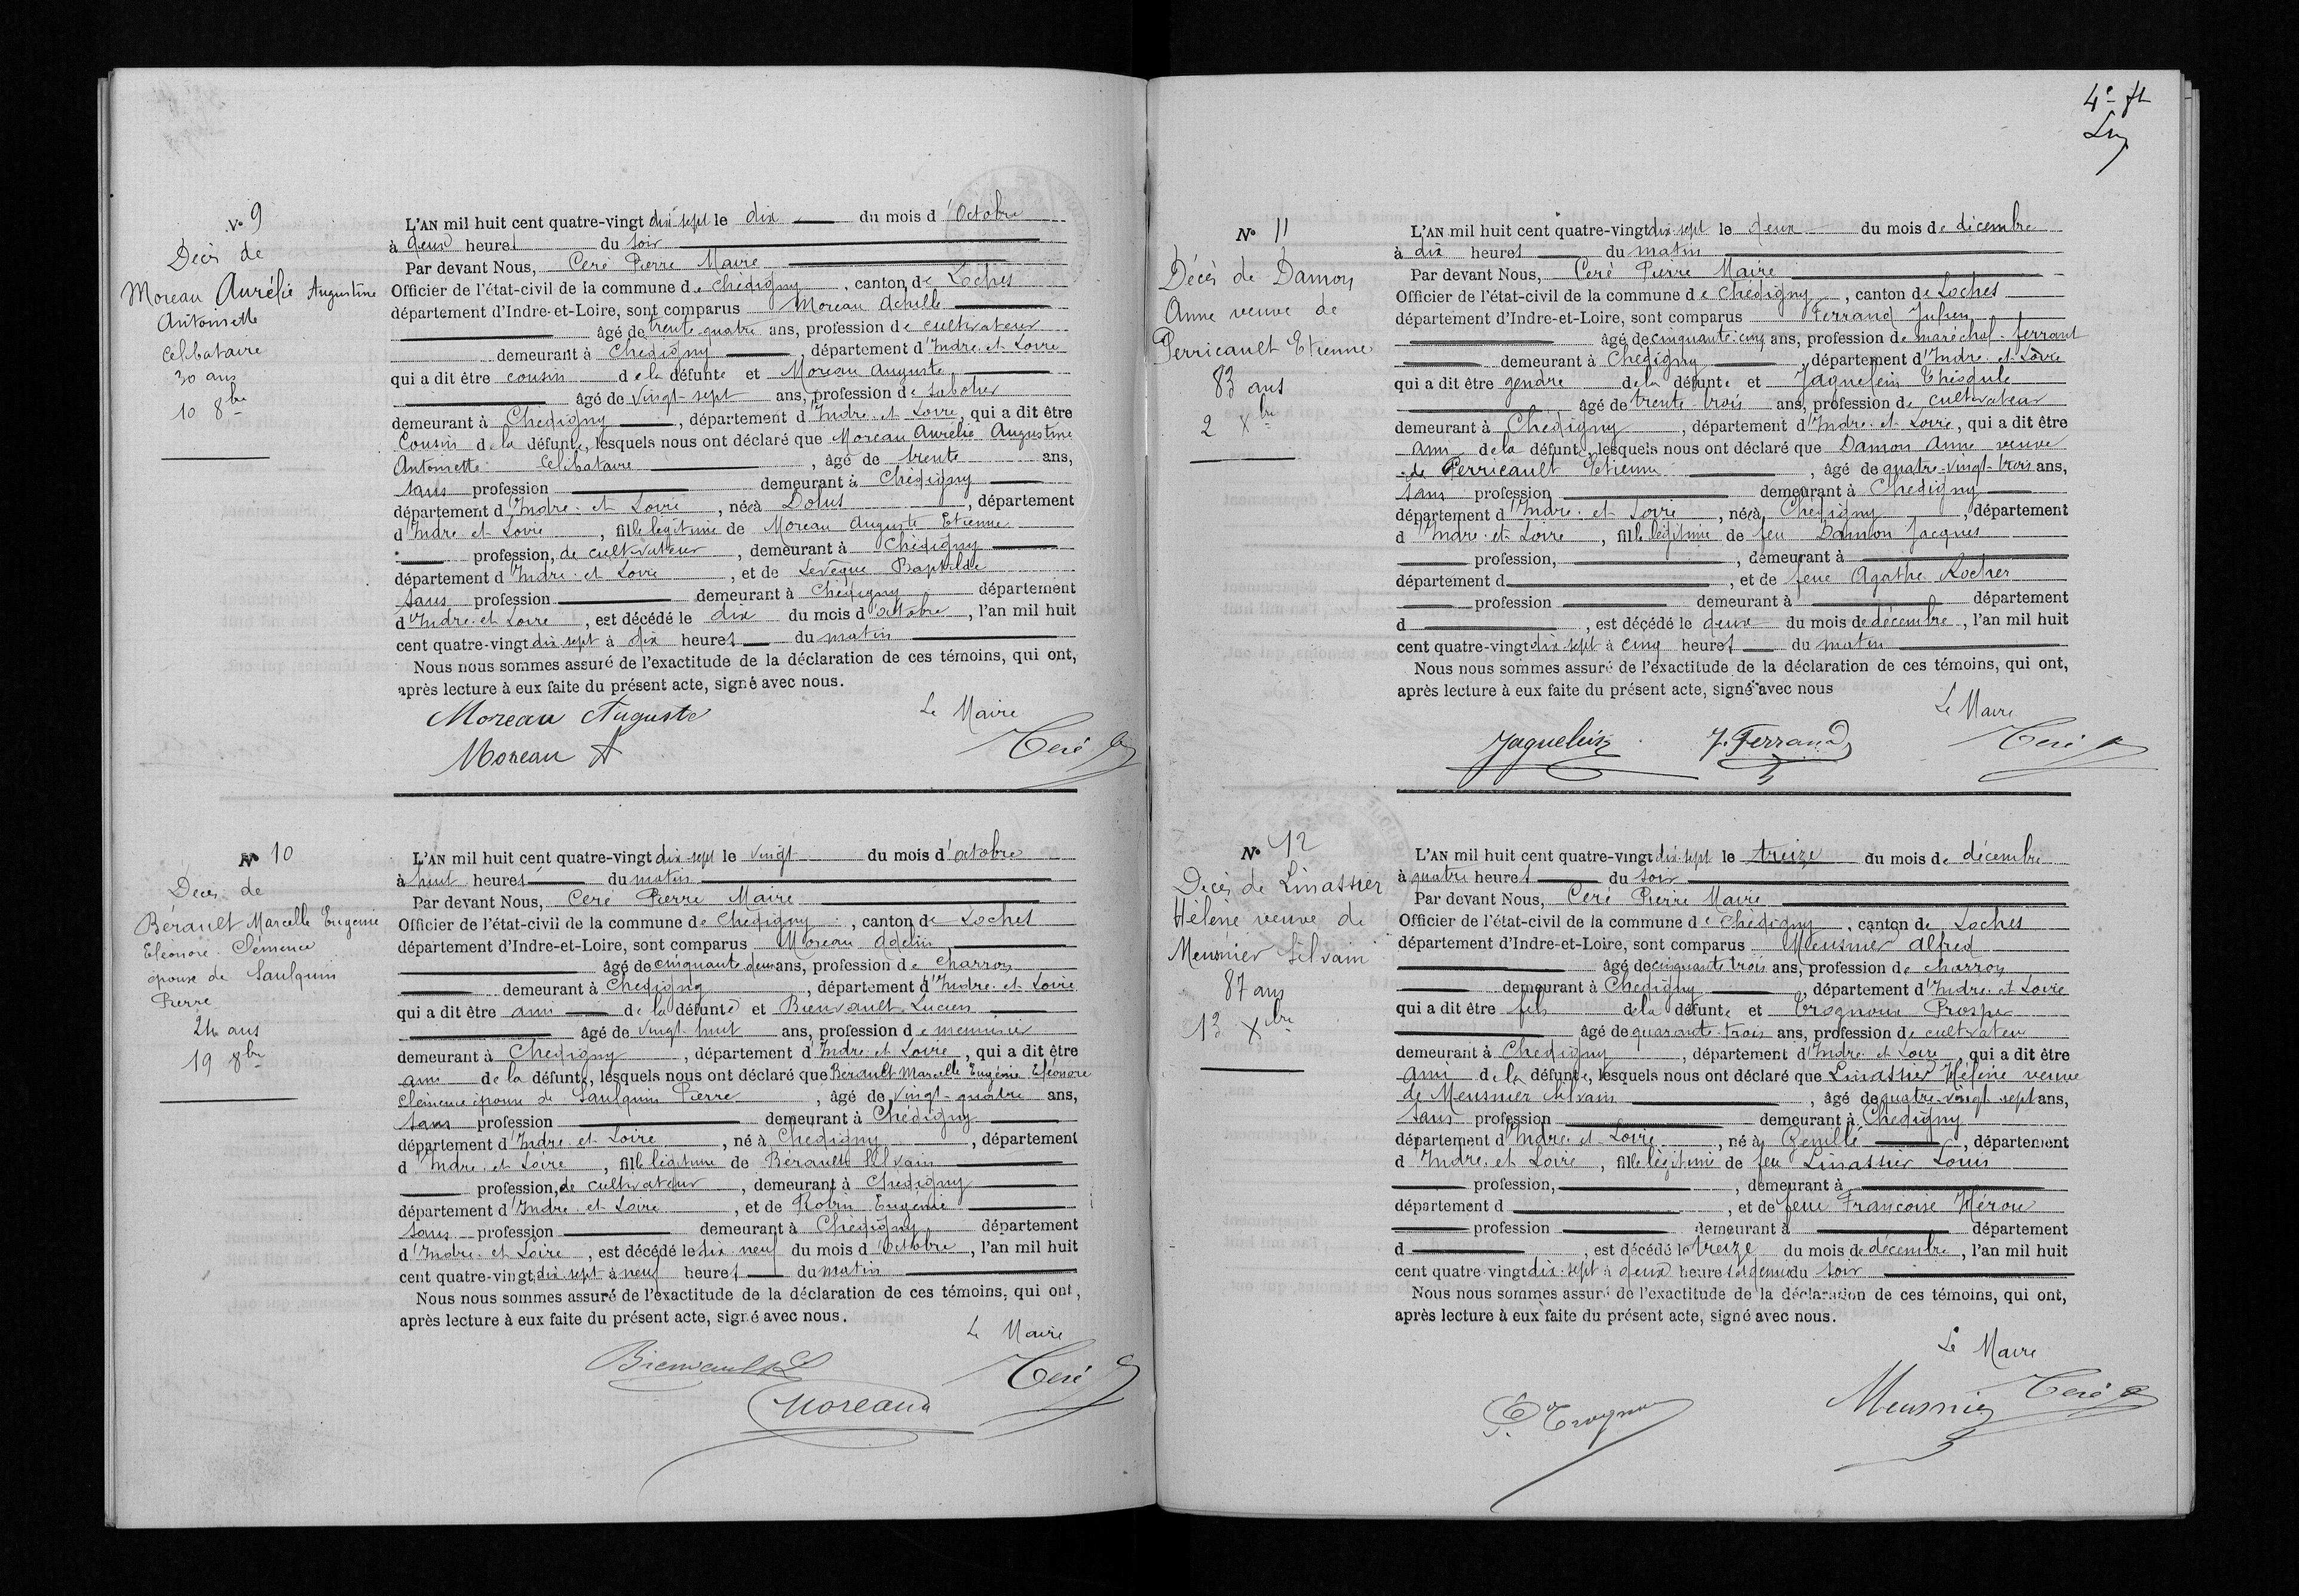 N° 9
Décès de
Moreau Aurélie Augustine
Antoinette
célibataire
30 ans
10 8bre
L'AN mil huit cent quatre-vingt dix sept le dix du mois d'Octobre
à deux heures du soir
Par devant Nous, Ceré Pierre Maire
Officier de l'état-civil de la commune de Chédigny, canton de Loches
département d'Indre-et-Loire, sont comparus Moreau Achille
âgé de trente quatre ans, profession de cultivateur
demeurant à Chédigny, département d'Indre et Loire
qui a dit être cousin de la défunte et Moreau Auguste
âgé de vingt-sept ans, profession de sabotier
demeurant à Chédigny, département d'Indre et Loire, qui a dit être
Cousin de la défunte, lesquels nous ont déclaré que Moreau Aurélie Augustine
Antoinette célibataire, âgé de trente ans,
sans profession demeurant à Chédigny
département d'Indre et Loire, née à Dolus, département
d'Indre et Loire, fille légitime de Moreau Auguste Etienne
profession, de cultivateur, demeurant à Chédigny
département d'Indre et Loire, et de Levêque Baptilde
sans profession demeurant à Chédigny département
d'Indre et Loire, est décédé le dix du mois d'octobre, l'an mil huit
cent quatre-vingt dix sept à dix heures du matin
Nous nous sommes assuré de l'exactitude de la déclaration de ces témoins, qui ont,
après lecture à eux faite du présent acte, signé avec nous.
Moreau Auguste
Le Maire
Moreau A
Ceré
N° 10
Décès de
Bérault Marcelle Eugenie
Eléonore Clémence
épouse de Saulquin
Pierre
24 ans
19 8bre
L'AN mil huit cent quatre-vingt dix-sept le vingt du mois d'octobre
à huit heures du matin
Par devant Nous, Ceré Pierre Maire
Officier de l'état-civil de la commune de Chédigny, canton de Loches
département d'Indre-et-Loire, sont comparus Moreau Adelin
âgé de cinquante deux ans, profession de charron
demeurant à Chédigny, département d'Indre et Loire
qui a dit être ami de la défunte et Bienvault Lucien
âgé de vingt huit ans, profession de menuisier
demeurant à Chédigny, département d'Indre et Loire, qui a dit être
ami de la défunte, lesquels nous ont déclaré que Berault Marcelle Eugénie Eléonore
Clémence épouse de Saulquin Pierre, âgé de vingt-quatre ans,
sans profession demeurant à Chédigny
département d'Indre et Loire, né à Chédigny, département
d'Indre et Loire, fille légitime de Bérault Silvain
profession, de cultivateur, demeurant à Chédigny
département d'Indre et Loire, et de Robin Eugénie
sans profession demeurant à Chédigny département
d'Indre et Loire, est décédé le dix neuf du mois d'octobre, l'an mil huit
cent quatre-vingt dix sept à neuf heures du matin
Nous nous sommes assuré de l'exactitude de la déclaration de ces témoins, qui ont,
après lecture à eux faite du présent acte, signé avec nous.
Le Maire
Bienvault L
Ceré
Moreau
4e ft
N° 11
Décès de Damon
Anne veuve de
Perricault Etienne
83 ans
2 Xbre
L'AN mil huit cent quatre-vingt dix-sept le deux du mois de décembre
à dix heures du matin
Par devant Nous, Ceré Pierre Maire
Officier de l'état-civil de la commune de Chédigny, canton de Loches
département d'Indre-et-Loire, sont comparus Ferrand Julien
âgé de cinquante-cinq ans, profession de maréchal-ferrant
demeurant à Chédigny, département d'Indre et Loire
qui a dit être gendre de la défunte et Jaquelein Théodule
âgé de trente trois ans, profession de cultivateur
demeurant à Chédigny, département d'Indre et Loire, qui a dit être
ami de la défunte, lesquels nous ont déclaré que Damon Anne veuve
de Perricault Etienne, âgé de quatre-vingt trois ans,
sans profession demeurant à Chédigny
département d'Indre et Loire, née à Chédigny, département
d'Indre et Loire, fille légitime de feu Damon Jacques
profession, demeurant à
département d, et de feue Agathe Rocher
profession demeurant à département
d, est décédé le deux du mois de décembre, l'an mil huit
cent quatre-vingt dix sept à cinq heures du matin
Nous nous sommes assuré de l'exactitude de la déclaration de ces témoins, qui ont,
après lecture à eux faite du présent acte, signé avec nous
Le Maire
Jaquelein J. Ferrand Ceré
N° 12
Décès de Linassier
Hélène veuve de
Meusnier Silvain
87 ans
13 Xbre
L'AN mil huit cent quatre-vingt dix-sept le treize du mois de décembre
à quatre heures du soir
Par devant Nous, Ceré Pierre Maire
Officier de l'état-civil de la commune de Chédigny, canton de Loches
département d'Indre-et-Loire, sont comparus Meusnier Alfred
âgé de cinquante trois ans, profession de charron
demeurant à Chédigny, département d'Indre et Loire
qui a dit être fils de la défunte et Trognoux Prosper
âgé de quarante-trois ans, profession de cultivateur
demeurant à Chédigny, département d'Indre et Loire, qui a dit être
ami de la défunte, lesquels nous ont déclaré que Linassier Hélène veuve
de Meusnier Silvain, âgé de quatre-vingt sept ans,
sans profession demeurant à Chédigny
département d'Indre et Loire, né à Genillé, département
d'Indre et Loire, fille légitime de feu Linassier Louis
profession, demeurant à
département d, et de feue Françoise Hérou
profession demeurant à département
d, est décédé le treize du mois de décembre, l'an mil huit
cent quatre vingt dix-sept à deux heures et demie du soir
Nous nous sommes assuré de l'exactitude de la déclaration de ces témoins, qui ont,
après lecture à eux faite du présent acte, signé avec nous.
Le Maire
Meusnier Ceré